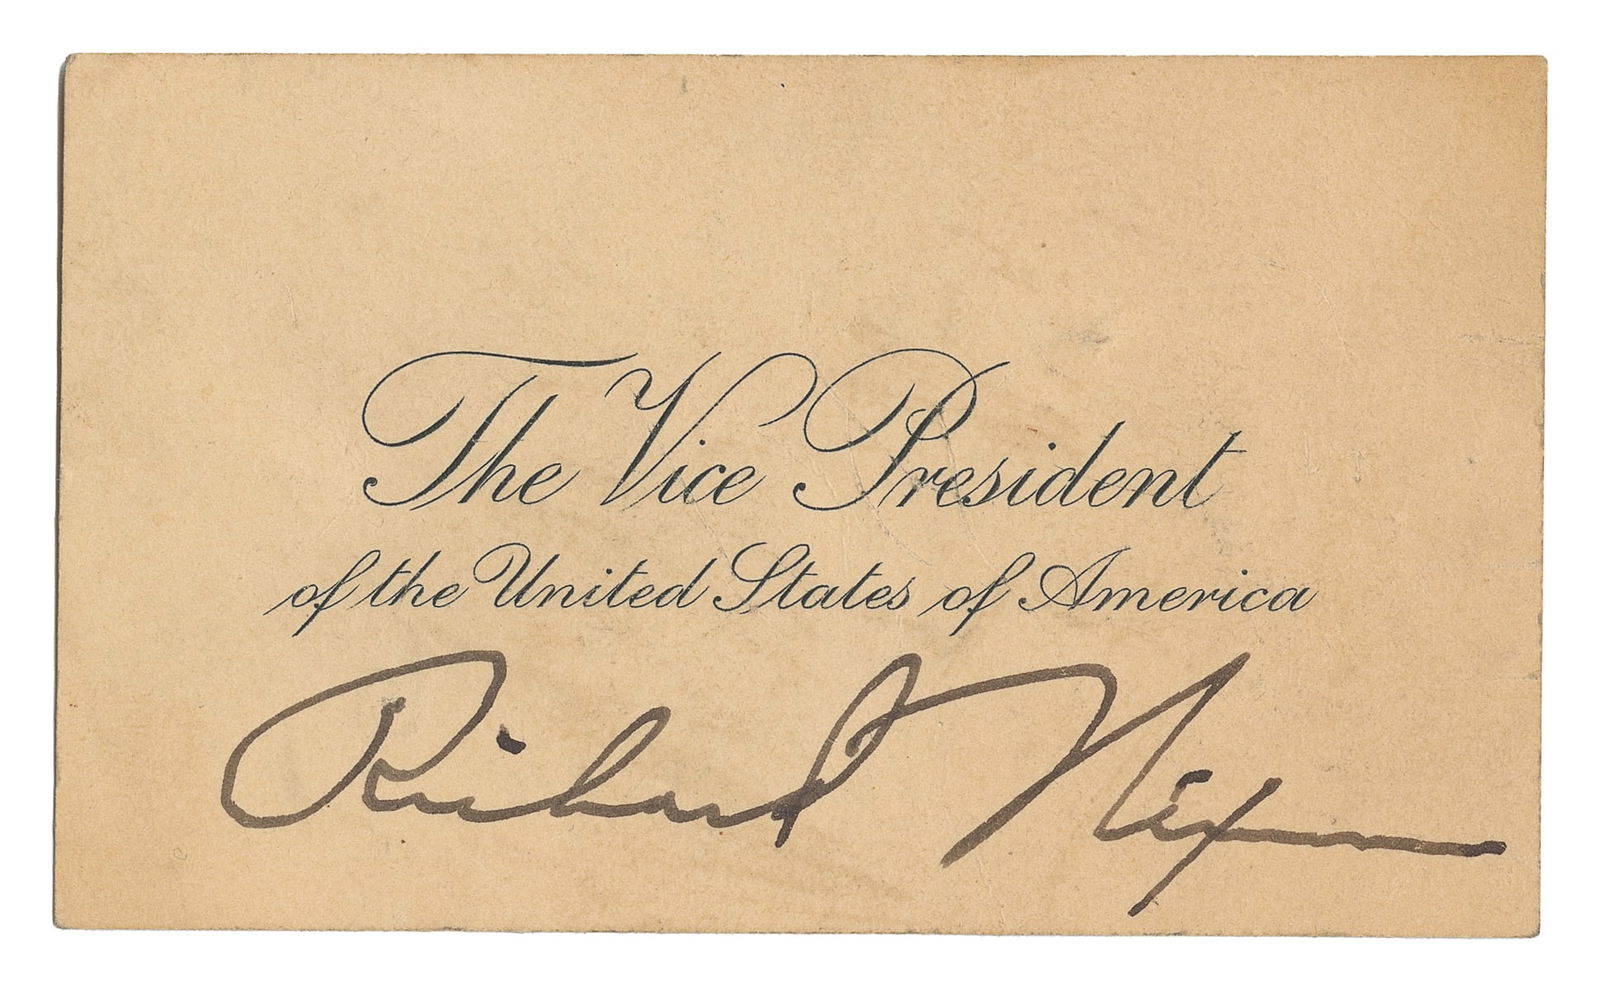 The Vice President
of the United States of America
Richard Nixon